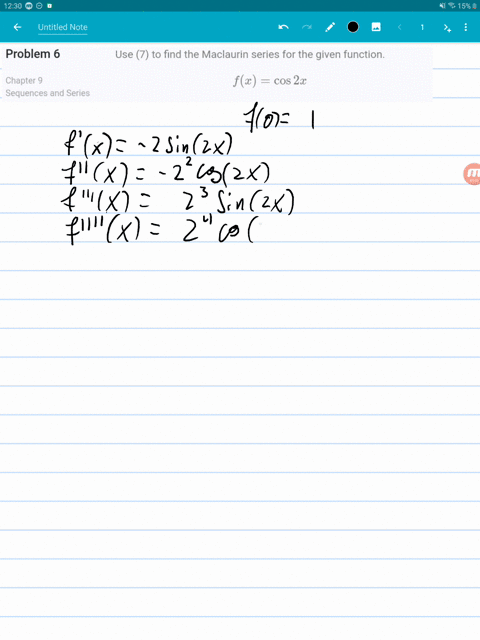 12:30 15%
Untitled Note 1
Problem 6 Use (7) to find the Maclaurin series for the given function.
Chapter 9
Sequences and Series
f(x) = cos 2x
f(0) = 1
f'(x) = -2 sin(2x)
f''(x) = -2² cos(2x)
f'''(x) = 2³ sin(2x)
f''''(x) = 2⁴ cos(